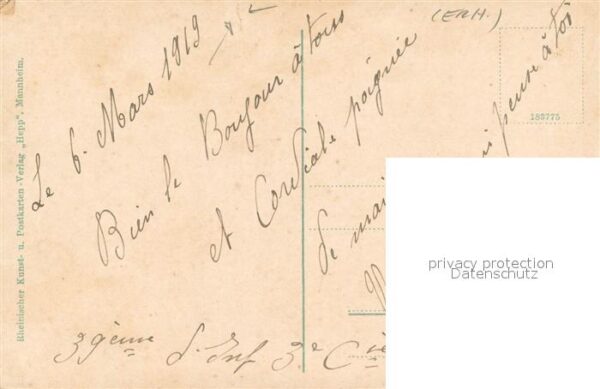 (ERH.)
Le 6. Mars 1919
Bien le Bonjour à tous
et Cordiale poignée
de mai
pense à toi
39ème d'Inf 3e Cie
Rheinischer Kunst- u. Postkarten-Verlag „Hepp", Mannheim.
183775
privacy protection
Datenschutz